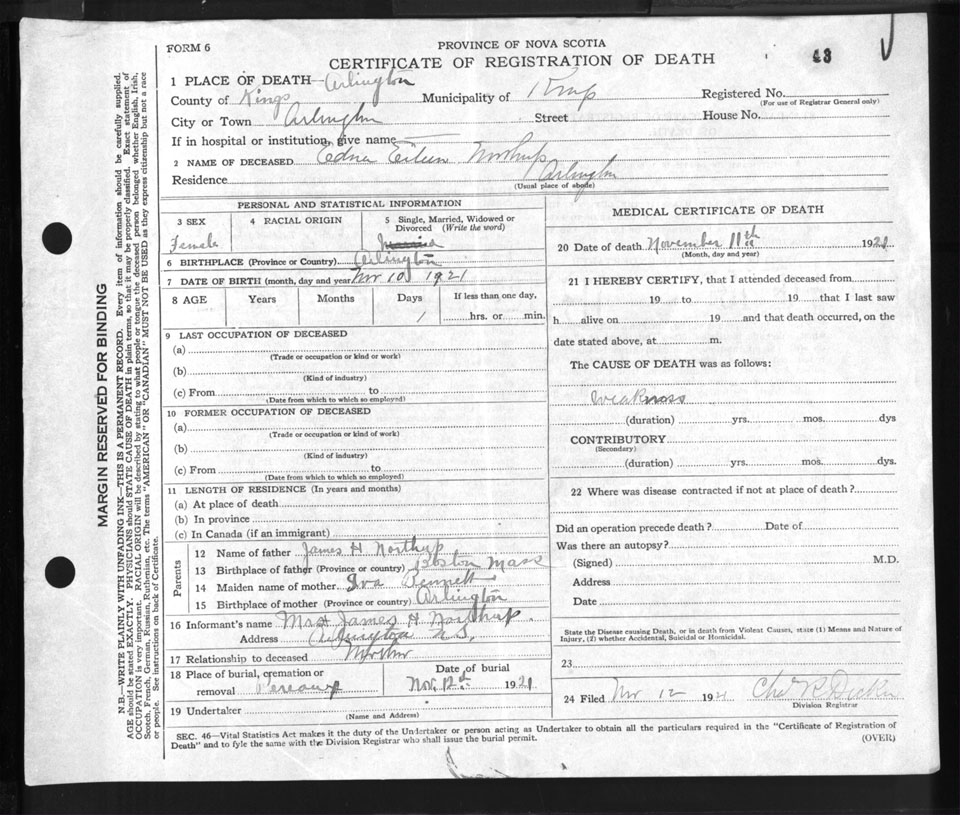 FORM 6
PROVINCE OF NOVA SCOTIA
43
CERTIFICATE OF REGISTRATION OF DEATH
1 PLACE OF DEATH—Arlington
County of Kings Municipality of Kings Registered No.
(For use of Registrar General only)
City or Town Arlington Street House No.
If in hospital or institution, give name
2 NAME OF DECEASED Edna Eileen Northup
Residence Arlington
(Usual place of abode)
PERSONAL AND STATISTICAL INFORMATION
3 SEX 4 RACIAL ORIGIN 5 Single, Married, Widowed or
Divorced (Write the word)
Female
6 BIRTHPLACE (Province or Country) Arlington
7 DATE OF BIRTH (month, day and year) Nov 10, 1921
8 AGE Years Months Days If less than one day,
1 hrs. or min.
9 LAST OCCUPATION OF DECEASED
(a)
(Trade or occupation or kind or work)
(b)
(Kind of industry)
(c) From to
(Date from which to which so employed)
10 FORMER OCCUPATION OF DECEASED
(a)
(Trade or occupation or kind of work)
(b)
(Kind of industry)
(c) From to
(Date from which to which so employed)
11 LENGTH OF RESIDENCE (In years and months)
(a) At place of death
(b) In province
(c) In Canada (if an immigrant)
Parents
12 Name of father James H Northup
13 Birthplace of father (Province or country) Boston Mass
14 Maiden name of mother Iva Bennett
15 Birthplace of mother (Province or country) Arlington
16 Informant's name Mrs James H Northup
Address Arlington N.S.
17 Relationship to deceased Mother
18 Place of burial, cremation or Date of burial
removal Pereaux Nov. 12th 1921
19 Undertaker
(Name and Address)
MEDICAL CERTIFICATE OF DEATH
20 Date of death November 11th 1921
(Month, day and year)
21 I HEREBY CERTIFY, that I attended deceased from
19 to 19 that I last saw
h alive on 19 and that death occurred, on the
date stated above, at m.
The CAUSE OF DEATH was as follows:
weakness
(duration) yrs. mos. dys
CONTRIBUTORY
(Secondary)
(duration) yrs. mos. dys.
22 Where was disease contracted if not at place of death?
Did an operation precede death? Date of
Was there an autopsy?
(Signed) M.D.
Address
Date
State the Disease causing Death, or in death from Violent Causes, state (1) Means and Nature of
Injury, (2) whether Accidental, Suicidal or Homicidal.
23
24 Filed Nov 12 1921 Chas R
Division Registrar
SEC. 46—Vital Statistics Act makes it the duty of the Undertaker or person acting as Undertaker to obtain all the particulars required in the "Certificate of Registration of
Death" and to fyle the same with the Division Registrar who shall issue the burial permit. (OVER)
MARGIN RESERVED FOR BINDING
N.B.—WRITE PLAINLY WITH UNFADING INK—THIS IS A PERMANENT RECORD. Every item of information should be carefully supplied.
AGE should be stated EXACTLY. PHYSICIANS should STATE CAUSE OF DEATH in plain terms, so that it may be properly classified. Exact statement of
OCCUPATION is very important. RACIAL ORIGIN will be described by stating to what people or tongue the deceased person belonged whether English, Irish,
Scotch, French, German, Russian, Ruthenian, etc. The terms "AMERICAN" OR "CANADIAN" MUST NOT BE USED as they express citizenship but not a race
or people. See instructions on back of Certificate.